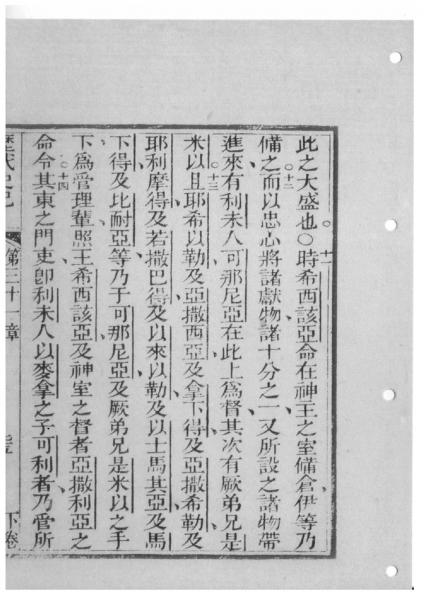 此之大盛也○十一時希西該亞命在神王之室備倉伊等乃
備之○十二而以忠心將諸獻物諸十分之一又所設之諸物帶
進來有利未人可那尼亞在此上為督其次有厥弟兄是
米以○十三且耶希以勒及亞撒西亞及拿下得及亞撒希勒及
耶利摩得及若撒巴得及以來以勒及以士馬其亞及馬
下得及比耐亞等乃于可那尼亞及厥弟兄是米以之手
下為管理輩照王希西該亞及神室之督者亞撒利亞之
命令○十四其東之門吏卽利未人以麥拿之子可利者乃管所
歷代史記 第三十一章 下卷